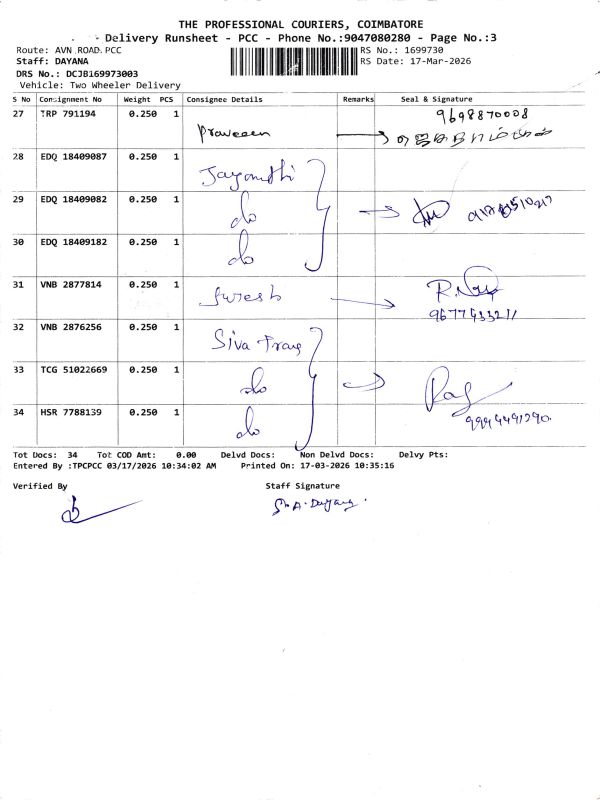 THE PROFESSIONAL COURIERS, COIMBATORE
Delivery Runsheet - PCC - Phone No.:9047080280 - Page No.:3
Route: AVN ROAD PCC
RS No.: 1699730
Staff: DAYANA
RS Date: 17-Mar-2026
DRS No.: DCJB169973003
Vehicle: Two Wheeler Delivery
S No Consignment No Weight PCS Consignee Details Remarks Seal & Signature
27 TRP 791194 0.250 1 Praveen 9698870008
28 EDQ 18409087 0.250 1 Jayanthi
29 EDQ 18409082 0.250 1 do
30 EDQ 18409182 0.250 1 do
31 VNB 2877814 0.250 1 Suresh
32 VNB 2876256 0.250 1 Siva
33 TCG 51022669 0.250 1 do
34 HSR 7788139 0.250 1 do
Tot Docs: 34 Tot COD Amt: 0.00 Delvd Docs: Non Delvd Docs: Delvy Pts:
Entered By :TPCPCC 03/17/2026 10:34:02 AM Printed On: 17-03-2026 10:35:16
Verified By Staff Signature